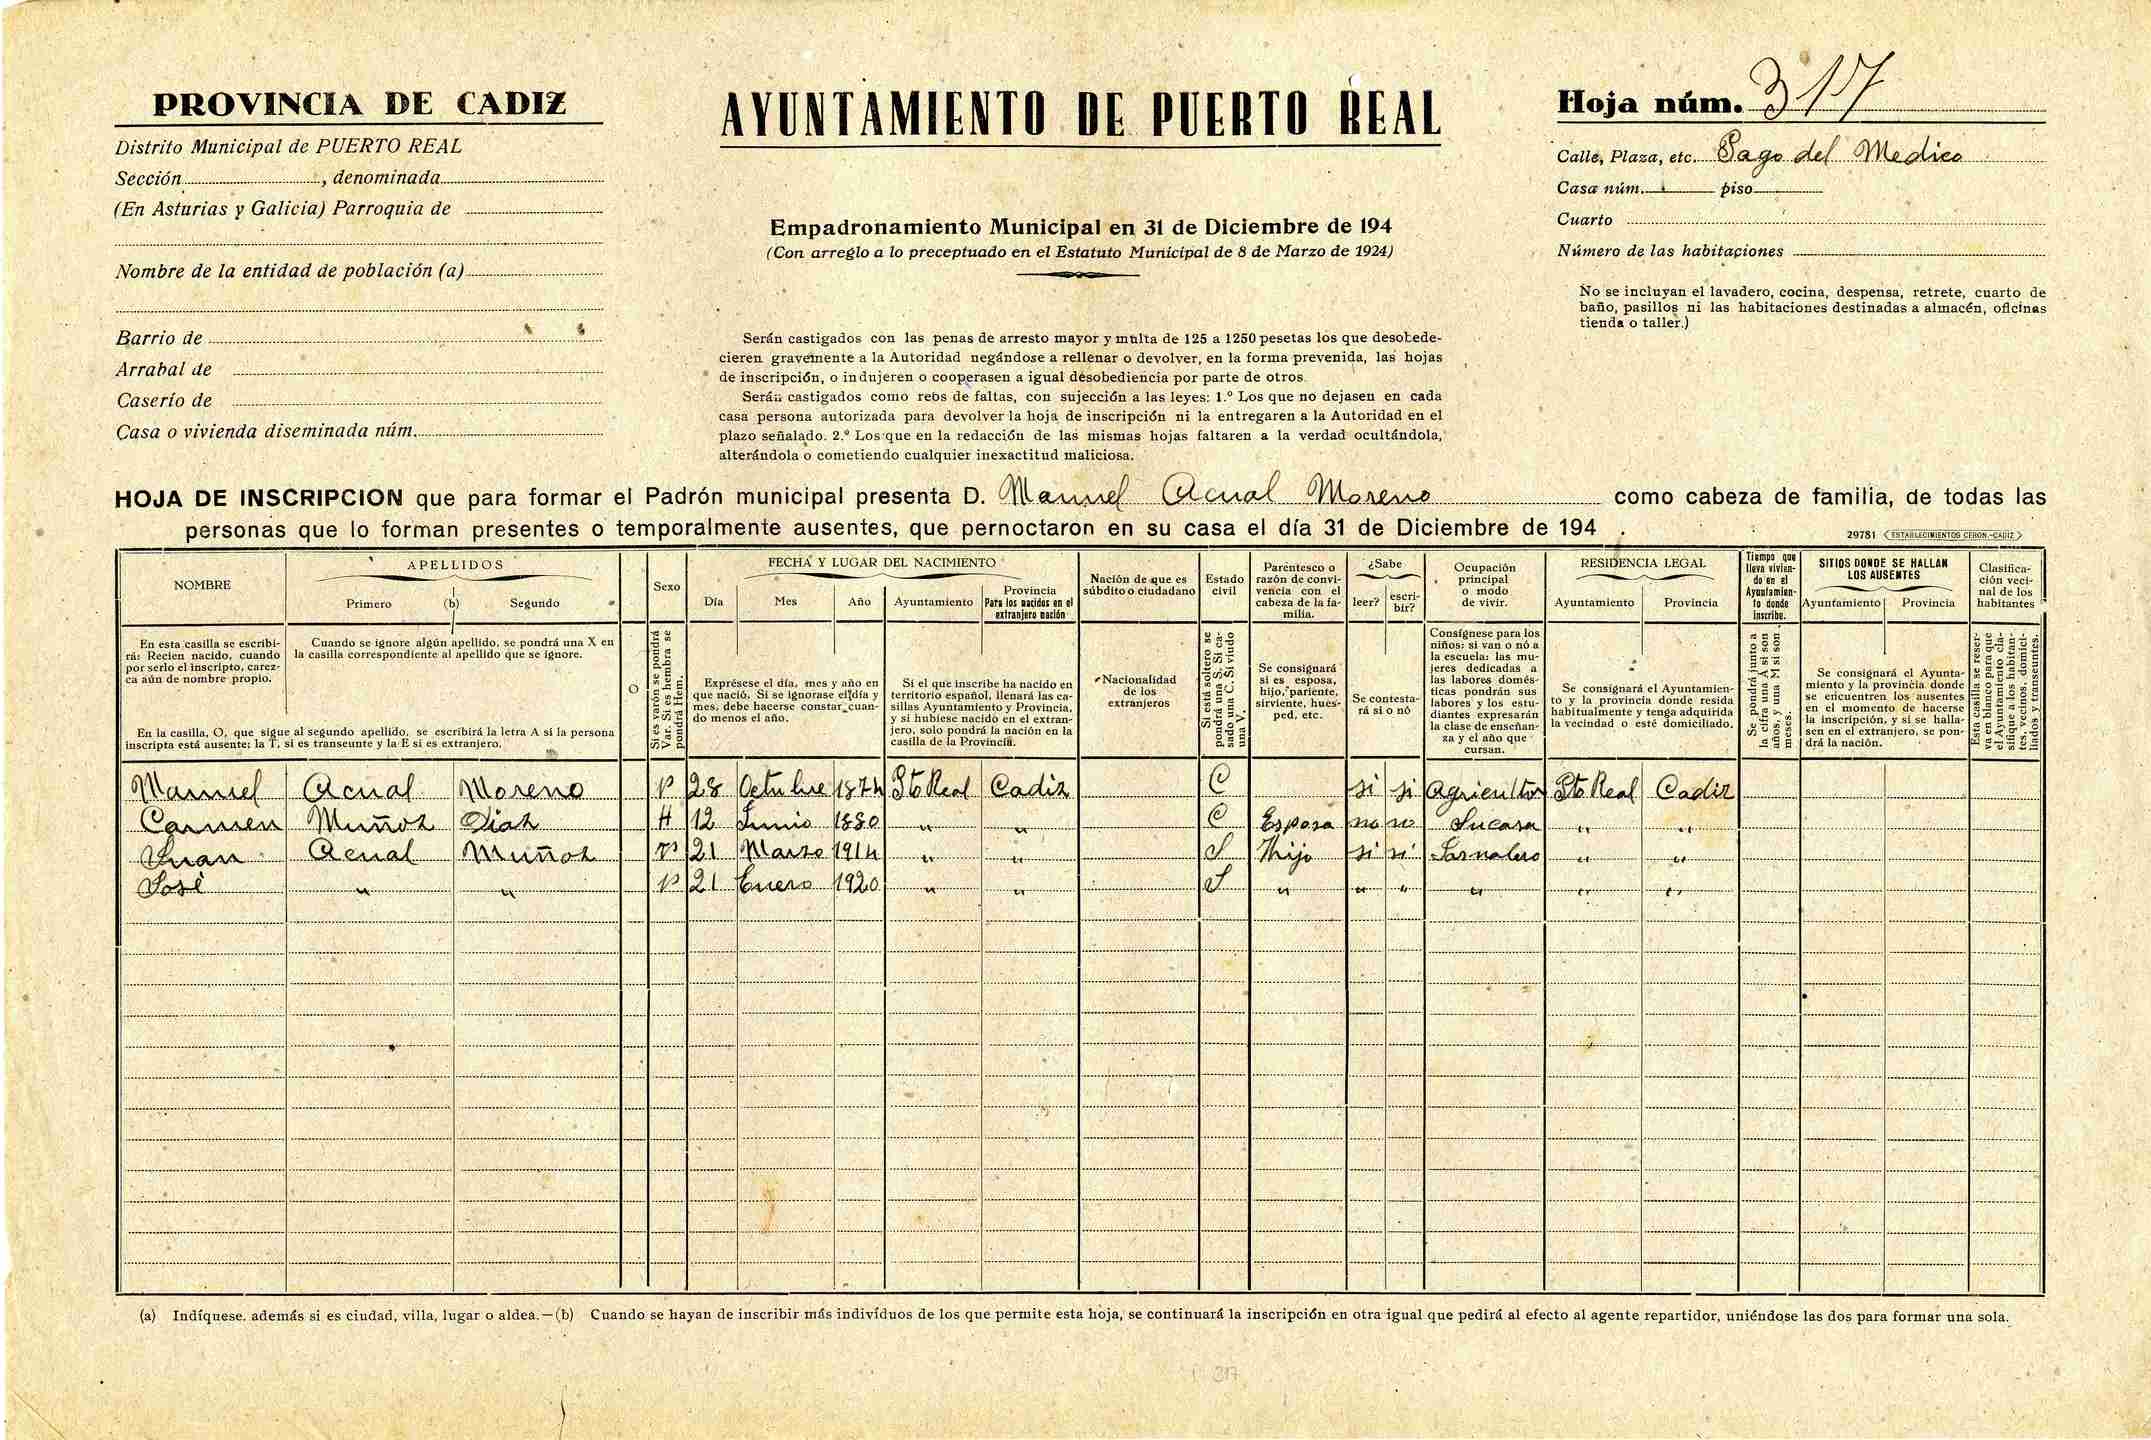 PROVINCIA DE CADIZ
Distrito Municipal de PUERTO REAL
Sección , denominada
(En Asturias y Galicia) Parroquia de
Nombre de la entidad de población (a)
Barrio de
Arrabal de
Caserío de
Casa o vivienda diseminada núm.
AYUNTAMIENTO DE PUERTO REAL
Empadronamiento Municipal en 31 de Diciembre de 194
(Con arreglo a lo preceptuado en el Estatuto Municipal de 8 de Marzo de 1924)
Serán castigados con las penas de arresto mayor y multa de 125 a 1250 pesetas los que desobede-
cieren gravemente a la Autoridad negándose a rellenar o devolver, en la forma prevenida, las hojas
de inscripción, o indujeren o cooperasen a igual desobediencia por parte de otros.
Serán castigados como reos de faltas, con sujección a las leyes: 1.º Los que no dejasen en cada
casa persona autorizada para devolver la hoja de inscripción ni la entregaren a la Autoridad en el
plazo señalado. 2.º Los que en la redacción de las mismas hojas faltaren a la verdad ocultándola,
alterándola o cometiendo cualquier inexactitud maliciosa.
Hoja núm. 317
Calle, Plaza, etc. Pago del Medico
Casa núm. piso
Cuarto
Número de las habitaciones
No se incluyan el lavadero, cocina, despensa, retrete, cuarto de
baño, pasillos ni las habitaciones destinadas a almacén, oficinas
tienda o taller.)
HOJA DE INSCRIPCION que para formar el Padrón municipal presenta D. Manuel Acual Moreno como cabeza de familia, de todas las
personas que lo forman presentes o temporalmente ausentes, que pernoctaron en su casa el día 31 de Diciembre de 194 .
29781 ESTABLECIMIENTOS CERON.-CADIZ
NOMBRE
APELLIDOS
Primero (b) Segundo
Sexo
FECHA Y LUGAR DEL NACIMIENTO
Día Mes Año Ayuntamiento
Provincia
Para los nacidos en el
extranjero nación
Nación de que es
súbdito o ciudadano
Estado
civil
Paréntesco o
razón de convi-
vencia con el
cabeza de la fa-
milia.
¿Sabe
leer? escri-
bir?
Ocupación
principal
o modo
de vivir.
RESIDENCIA LEGAL
Ayuntamiento Provincia
Tiempo que
lleva vivien-
do en el
Ayuntamien-
to donde
inscribe.
SITIOS DONDE SE HALLAN
LOS AUSENTES
Ayuntamiento Provincia
Clasifica-
ción veci-
nal de los
habitantes
En esta casilla se escribi-
rá: Recien nacido, cuando
por serlo el inscripto, carez-
ca aún de nombre propio.
Cuando se ignore algún apellido, se pondrá una X en
la casilla correspondiente al apellido que se ignore.
En la casilla, O, que sigue al segundo apellido, se escribirá la letra A si la persona
inscripta está ausente; la T, si es transeunte y la E si es extranjero.
O
Si es varón se pondrá
Var. Si es hembra se
pondrá Hem.
Exprésese el día, mes y año en
que nació. Si se ignorase el día y
mes, debe hacerse constar cuan-
do menos el año.
Si el que inscribe ha nacido en
territorio español, llenará las ca-
sillas Ayuntamiento y Provincia,
y si hubiese nacido en el extran-
jero, solo pondrá la nación en la
casilla de la Provincia.
Nacionalidad
de los
extranjeros
Si está soltero se
pondrá una S. Si ca-
sado una C. Si viudo
una V.
Se consignará
si es esposa,
hijo, pariente,
sirviente, hués-
ped, etc.
Se contesta-
rá si o nó
Consígnese para los
niños: si van o nó a
la escuela: las mu-
jeres dedicadas a
las labores domés-
ticas pondrán sus
labores y los estu-
diantes expresarán
la clase de enseñan-
za y el año que
cursan.
Se consignará el Ayuntamien-
to y la provincia donde resida
habitualmente y tenga adquirida
la vecindad o esté domiciliado.
Se pondrá junto a
la cifra una A si son
años, y una M si son
meses.
Se consignará el Ayunta-
miento y la provincia donde
se encuentren los ausentes
en el momento de hacerse
la inscripción, y si se halla-
sen en el extranjero, se pon-
drá la nación.
Esta casilla se reser-
va en blanco para que
el Ayuntamiento cla-
sifique a los habitan-
tes, vecinos, domici-
liados y transeuntes.
Manuel Acual Moreno V 28 Octubre 1874 Pto Real Cadiz C si si Agricultor Pto Real Cadiz
Carmen Muñoz Diaz H 12 Junio 1880 " " C Esposa no no Sucasa " "
Juan Acual Muñoz V 21 Marzo 1914 " " S Hijo si si Jornalero " "
José " " V 21 Enero 1920 " " S " " " " " "
(a) Indíquese. además si es ciudad, villa, lugar o aldea.—(b) Cuando se hayan de inscribir más indivíduos de los que permite esta hoja, se continuará la inscripción en otra igual que pedirá al efecto al agente repartidor, uniéndose las dos para formar una sola.
317